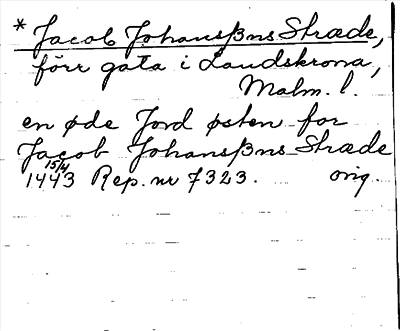 * Jacob Johansßns Stræde,
förr gata i Landskrona,
Malm. l.
en øde Jord østen for
Jacob Johansßns Stræde
1443 15/4 Rep. nr 7323. orig.